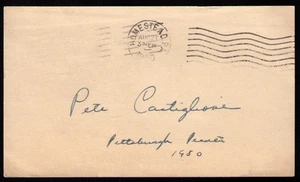 HOMESTEAD
Pete Castiglione
Pittsburgh Pirates
1950